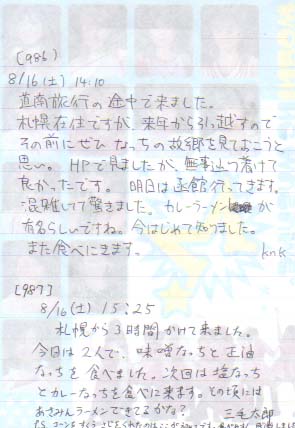 [986]
8/16(土) 14:10
道南旅行の途中で来ました。
札幌在住ですが、来年から引っ越すので
その前にぜひ なっちの故郷を見ておこうと
思い。 HPで見ましたが、無事辿り着けて
良かったです。 明日は函館行ってきます。
混雑していて驚きました。 カレーラーメン が
有名らしいですね。今はじめて知りました。
また食べにきます。 knk
[987]
8/16(土) 15:25
札幌から3時間かけて来ました。
今日は2人で、味噌なっちと正油
なっちを食べました。次回は塩なっち
とカレーなっちを食べに来ます。その頃には
あさみんラーメンできてるかな? 三毛太郎
P.S. コーンを